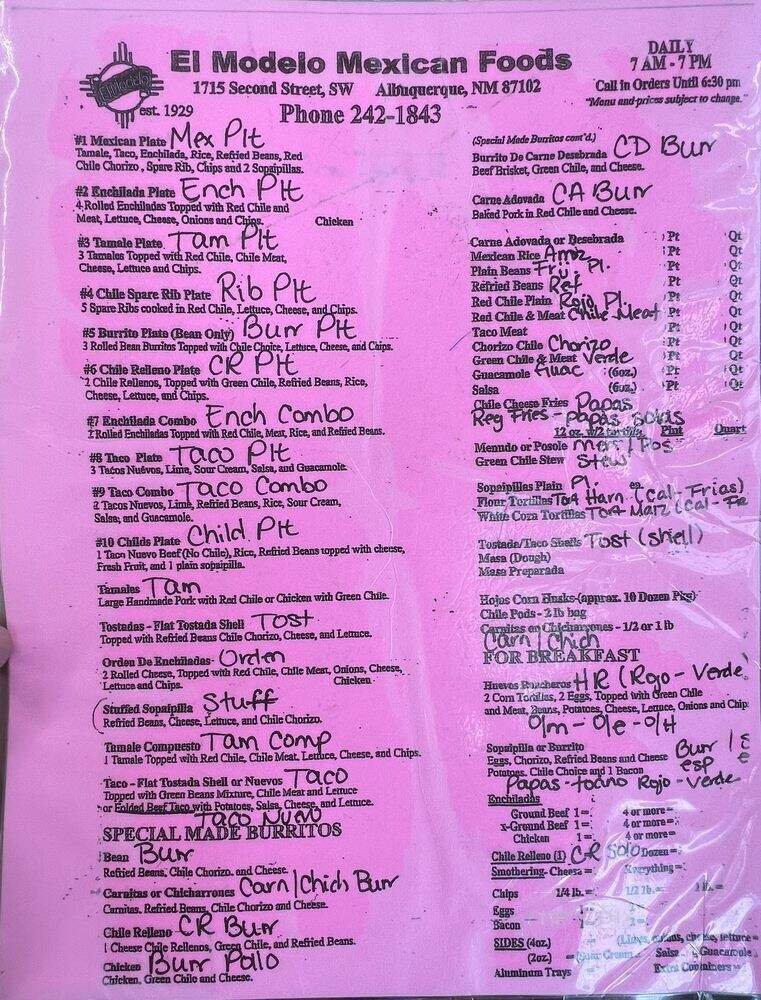 El Modelo Mexican Foods
1715 Second Street, SW Albuquerque, NM 87102
Phone 242-1843
El Modelo
est. 1929
DAILY
7 AM - 7 PM
Call in Orders Until 6:30 pm
"Menu and prices subject to change."
#1 Mexican Plate Mex Plt
Tamale, Taco, Enchilada, Rice, Refried Beans, Red
Chile Chorizo, Spare Rib, Chips and 2 Sopaipillas.
#2 Enchilada Plate Ench Plt
4 Rolled Enchiladas Topped with Red Chile and
Meat, Lettuce, Cheese, Onions and Chips. Chicken
#3 Tamale Plate Tam Plt
3 Tamales Topped with Red Chile, Chile Meat,
Cheese, Lettuce and Chips.
#4 Chile Spare Rib Plate Rib Plt
5 Spare Ribs cooked in Red Chile, Lettuce, Cheese, and Chips.
#5 Burrito Plate (Bean Only) Burr Plt
3 Rolled Bean Burritos Topped with Chile Choice, Lettuce, Cheese, and Chips.
#6 Chile Relleno Plate CR Plt
2 Chile Rellenos, Topped with Green Chile, Refried Beans, Rice,
Cheese, Lettuce, and Chips.
#7 Enchilada Combo Ench Combo
2 Rolled Enchiladas Topped with Red Chile, Meat, Rice, and Refried Beans.
#8 Taco Plate Taco Plt
3 Tacos Nuevos, Lime, Sour Cream, Salsa, and Guacamole
#9 Taco Combo Taco Combo
2 Tacos Nuevos, Lime, Refried Beans, Rice, Sour Cream,
Salsa, and Guacamole.
#10 Childs Plate Child Plt
1 Taco Nuevo Beef (No Chile), Rice, Refried Beans topped with cheese,
Fresh Fruit, and 1 plain sopaipilla.
Tamales Tam
Large Handmade Pork with Red Chile or Chicken with Green Chile.
Tostadas - Flat Tostada Shell Tost
Topped with Refried Beans Chile Chorizo, Cheese, and Lettuce.
Orden De Enchiladas Orden
2 Rolled Cheese, Topped with Red Chile, Chile Meat, Onions, Cheese,
Lettuce and Chips. Chicken
Stuffed Sopaipilla Stuff
Refried Beans, Cheese, Lettuce, and Chile Chorizo.
Tamale Compuesto Tam Comp
1 Tamale Topped with Red Chile, Chile Meat, Lettuce, Cheese, and Chips.
Taco - Flat Tostada Shell or Nuevos Taco
Topped with Green Beans Mixture, Chile Meat and Lettuce
or Folded Beef Taco with Potatoes, Salsa, Cheese, and Lettuce.
Taco Nuvo
SPECIAL MADE BURRITOS
Bean Burr
Refried Beans, Chile Chorizo, and Cheese.
Carnitas or Chicharrones Carn/Chich Burr
Carnitas, Refried Beans, Chile Chorizo and Cheese.
Chile Relleno CR Burr
1 Cheese Chile Rellenos, Green Chile, and Refried Beans.
Chicken Burr Pallo
Chicken, Green Chile and Cheese.
(Special Made Burritos cont'd.)
Burrito De Carne Desebrada CD Burr
Beef Brisket, Green Chile, and Cheese.
Carne Adovada CA Burr
Baked Pork in Red Chile and Cheese.
Carne Adovada or Desebrada Pt Qt
Mexican Rice Arroz Pt Qt
Plain Beans Frij. Pl. Pt Qt
Refried Beans Ref Pt Qt
Red Chile Plain Rojo Pl. Pt Qt
Red Chile & Meat Chile Meat Pt Qt
Taco Meat Pt Qt
Chorizo Chile Chorizo Pt Qt
Green Chile & Meat Verde Pt Qt
Guacamole Guac (6oz.) Pt Qt
Salsa (6oz.) Pt Qt
Chile Cheese Fries Papas
Reg Fries - papas solas
12 oz. w/2 tortilla Pint Quart
Menudo or Posole Men/Pos
Green Chile Stew Stew
Sopaipillas Plain Pl. ea.
Flour Tortillas Tort Harn (Cal-Frias)
White Corn Tortillas Tort Maiz (Cal-Fr
Tostada/Taco Shells Tost (shell)
Masa (Dough)
Masa Preparada
Hojos Corn Husks-(approx. 10 Dozen Pkg)
Chile Pods - 2 lb bag
Carnitas or Chicharrones - 1/2 or 1 lb
Carn/Chich
FOR BREAKFAST
Huevos Rancheros HR (Rojo - Verde
2 Corn Tortillas, 2 Eggs, Topped with Green Chile
and Meat, Beans, Potatoes, Cheese, Lettuce, Onions and Chips
O/m - O/e - O/H
Sopaipilla or Burrito Burr / S
Eggs, Chorizo, Refried Beans and Cheese esp
Potatoes, Chile Choice and 1 Bacon
Papas - tocino Rojo - Verde
Enchiladas
Ground Beef 1= 4 or more=
x-Ground Beef 1= 4 or more=
Chicken 1= 4 or more=
Chile Relleno (1) CR Solo Dozen=
Smothering- Cheese= Everything=
Chips 1/4 lb.= 1/2 lb.= 1 lb.=
Eggs
Bacon
SIDES (4oz.) = (Limes, onions, cheese, lettuce=
(2oz.) = (Sour Cream Salsa Guacamole
Aluminum Trays = Extra Containers=